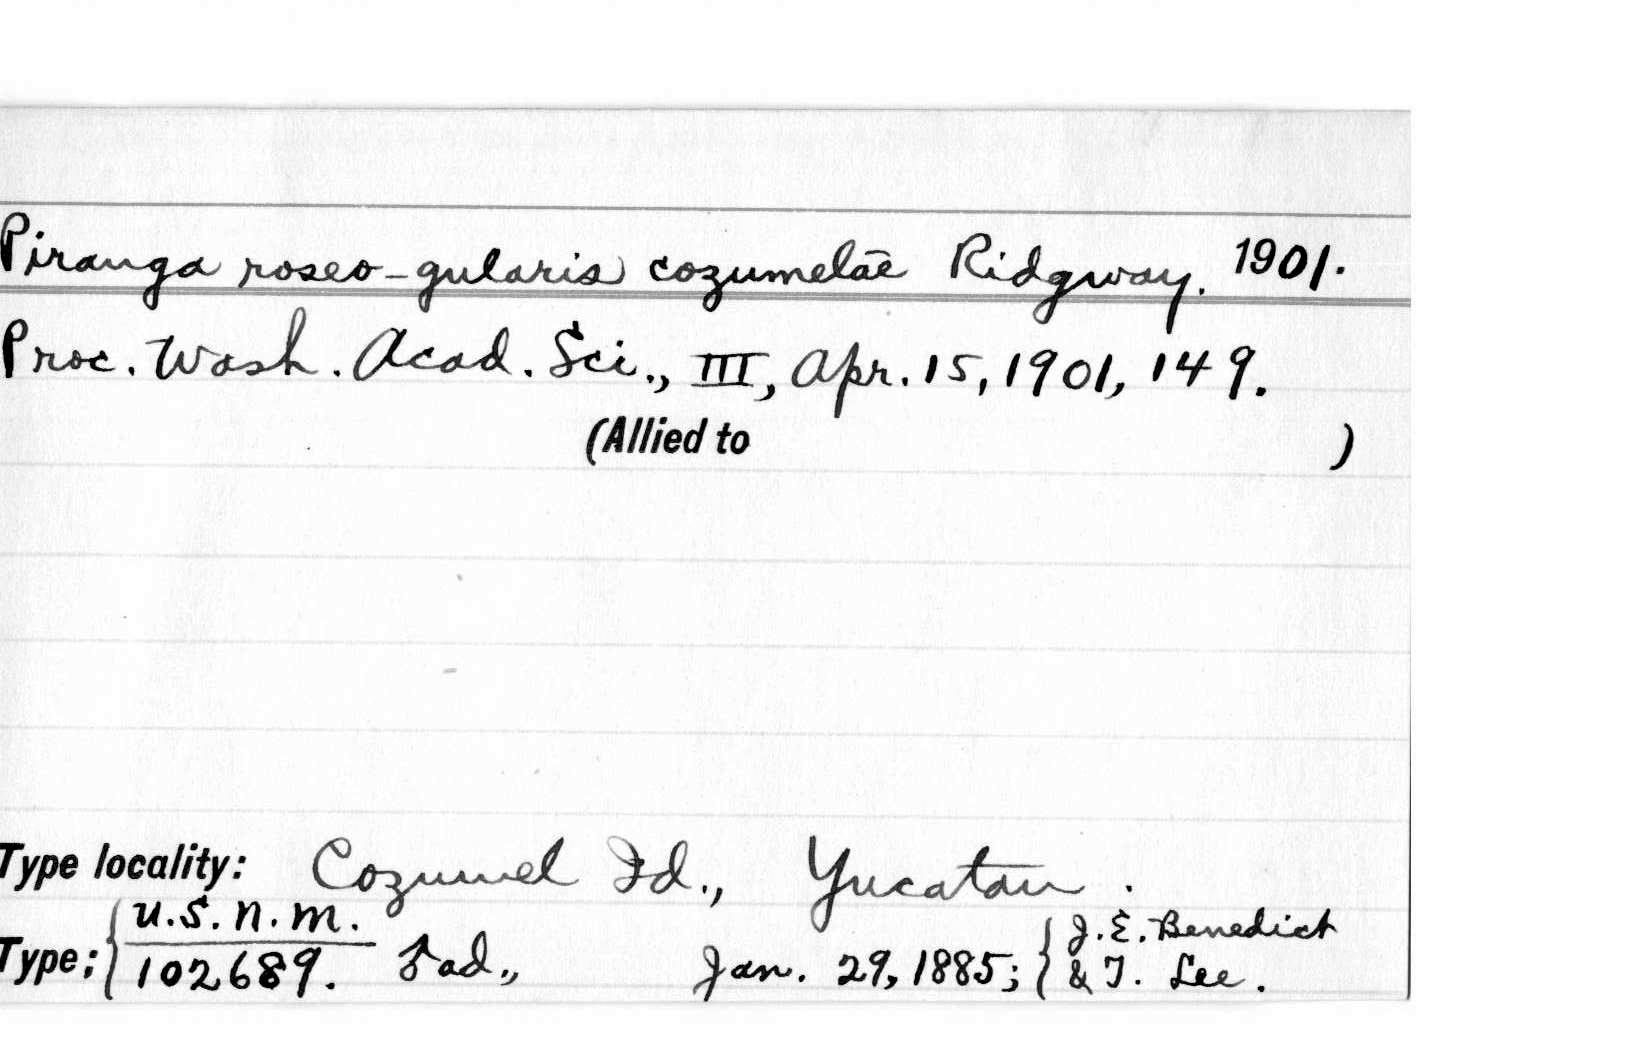 Piranga roseo-gularis cozumelae Ridgway. 1901.
Proc. Wash. Acad. Sci., III, Apr. 15, 1901, 149.
(Allied to )
Type locality: Cozumel Id., Yucatan.
U.S.N.M. J.E. Benedict
Type; 102689. ad., Jan. 29, 1885; & T. Lee.